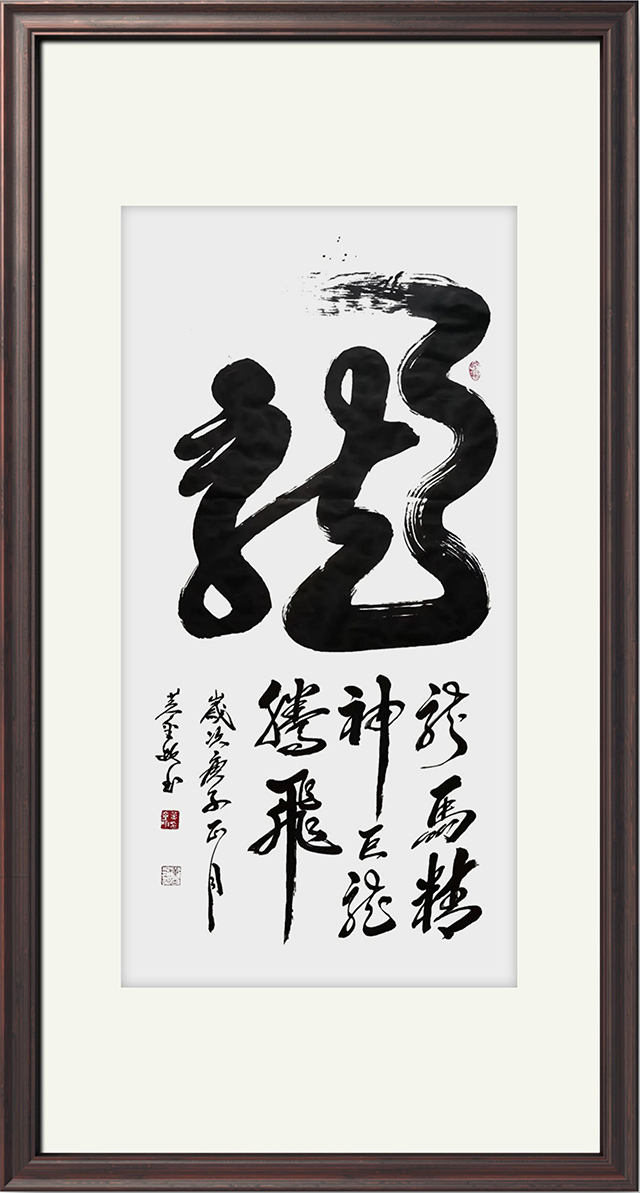 龍
龍馬精
神巨龍
騰飛
歲次庚子正月